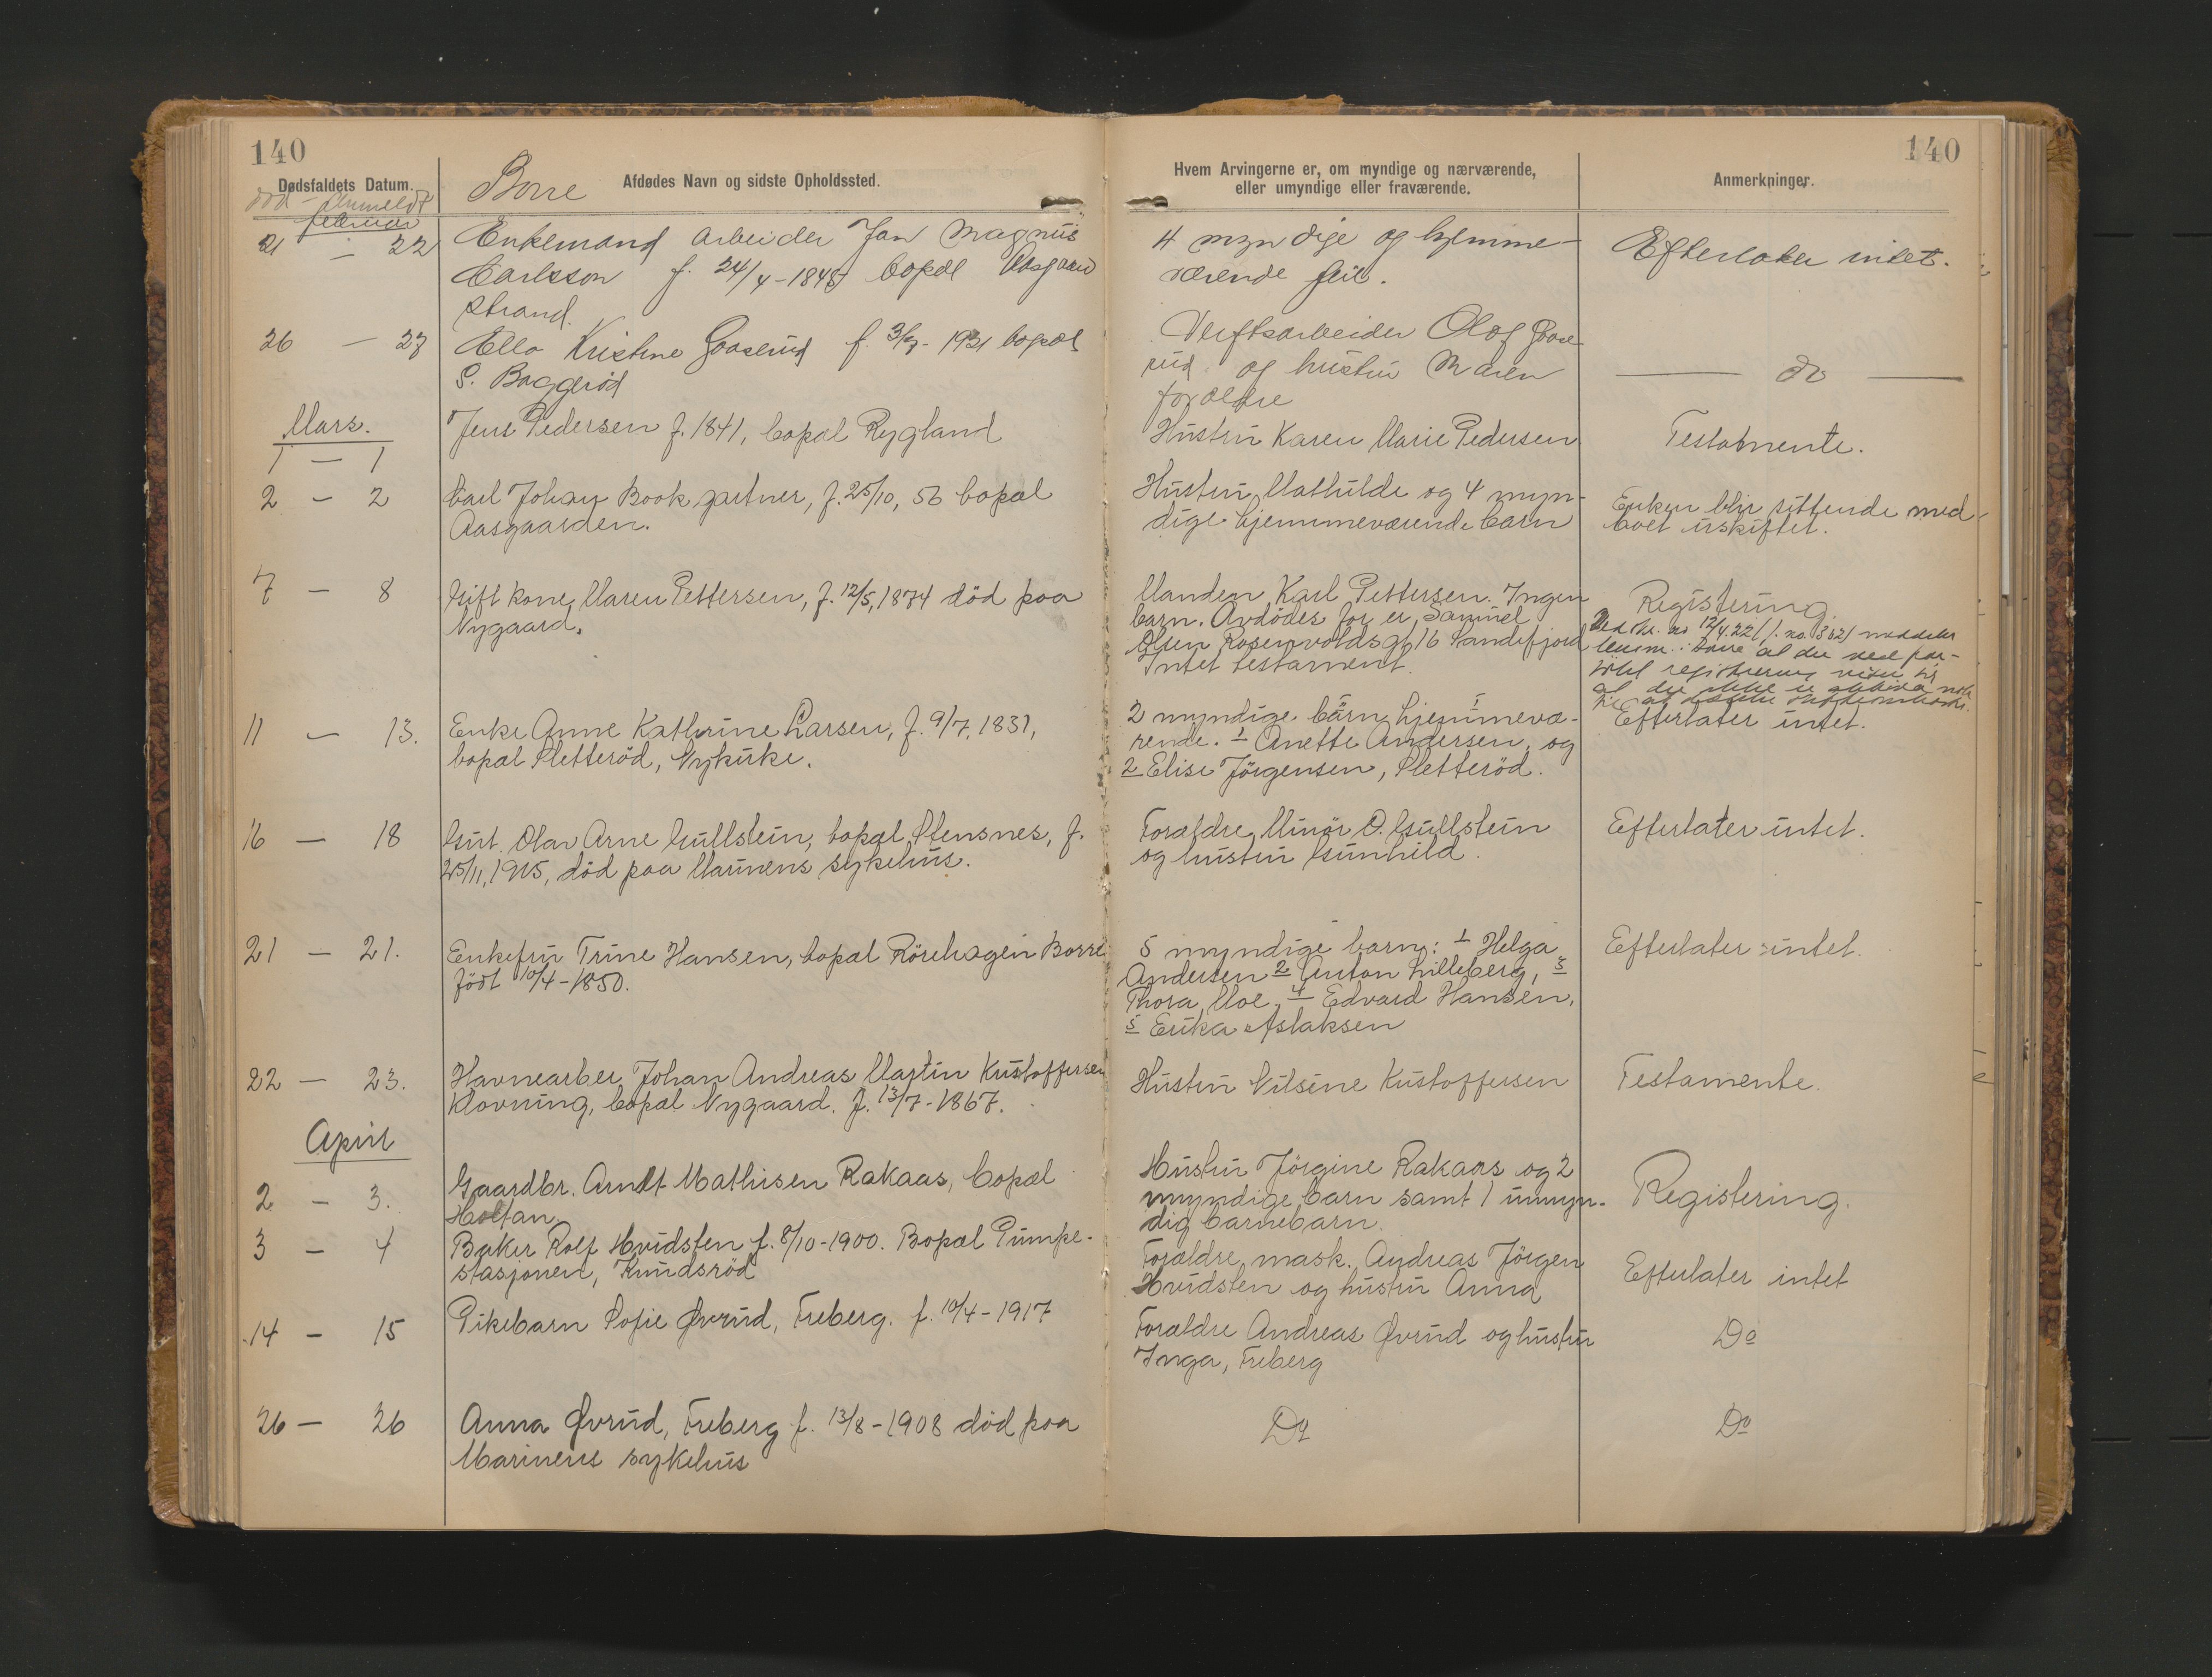 140
140
Dødsfaldets Datum.
Borre
Afdødes Navn og sidste Opholdssted.
Hvem Arvingerne er, om myndige og nærværende,
eller umyndige eller fraværende.
Anmerkninger.
död - Anmeldt
februar
21 - 22
Enkemand arbeider Jan Magnus
Carlsson f. 24/4-1848 bopæl Aasgaard
strand.
4 myndige og hjemme-
værende
Efterlater intet.
26 - 27
Ella Kristine Gaaserud f. 3/7-1921 bopæl
S. Baggeröd
Verftsarbeider Olaf Gaase
rud og hustru Maren
forældre
do
Mars.
1 - 1
Jens Pedersen f. 1841, bopæl Rygland
Hustru Karen Marie Pedersen
Testamente.
2 - 2
Carl Johan Book gartner, f. 25/10, 56 bopæl
Aasgaarden.
Hustru Mathilde og 4 myn-
dige hjemmeværende barn
Enken blir sittende med
boet uskiftet.
7 - 8
Gift kone Maren Pettersen, f. 12/5, 1874 död paa
Nygaard.
Manden Karl Pettersen. Ingen
barn. Avdödes far er Samuel
Olsen Rosenvoldsgt 16 Sandefjord
Intet testament.
Registering.
Ved skr. av 12/4.22 j. no.
lensm. i Borre at
registrering
at der ikke er
11 - 13.
Enke Anne Kathrine Larsen, f. 9/7, 1831,
bopæl Sletteröd, Nykirke.
2 myndige barn hjemmevæ-
rende. 1 Anette Andersen, og
2 Elise Jörgensen, Sletteröd.
Efterlater intet.
16 - 18
Gut. Olav Arne Gullstein, bopæl Stensnes, f.
25/11, 1915, död paa Marinens sykehus.
Forældre Minör O. Gullstein
og hustru Gunhild.
Efterlater intet.
21 - 21.
Enkefru Trine Hansen, bopæl Rörehagen Borre
födt 10/4-1850.
5 myndige barn: 1 Helga
Andersen 2 Anton Lilleberg, 3
Thora Moe, 4 Edvard Hansen,
5 Erika Aslaksen
Efterlater intet.
22 - 23.
Havnearber Johan Andreas Martin Kristoffersen
Klovning, bopæl Nygaard. f. 13/7-1867.
Hustru Nilsine Kristoffersen
Testamente.
April
2 - 3.
Gaardbr. Arndt Mathisen Rakaas, bopæl
Holtan.
Hustru Jörgine Rakaas og 2
myndige barn samt 1 umyn-
dig barnebarn.
Registering.
3 - 4
Baker Rolf Hvidsten f. 8/10-1900. Bopæl Pumpe-
stasjonen, Knudsröd
Forældre mask. Andreas Jörgen
Hvidsten og hustru Anna
Efterlater intet
14 - 15
Pikebarn Sofie Øvrud, Freberg. f. 10/4-1917
Forældre Andreas Øvrud og hustru
Inga, Freberg
Do
26 - 26
Anna Øvrud, Freberg f. 13/8-1908 död paa
Marinens sykehus
Do
Do